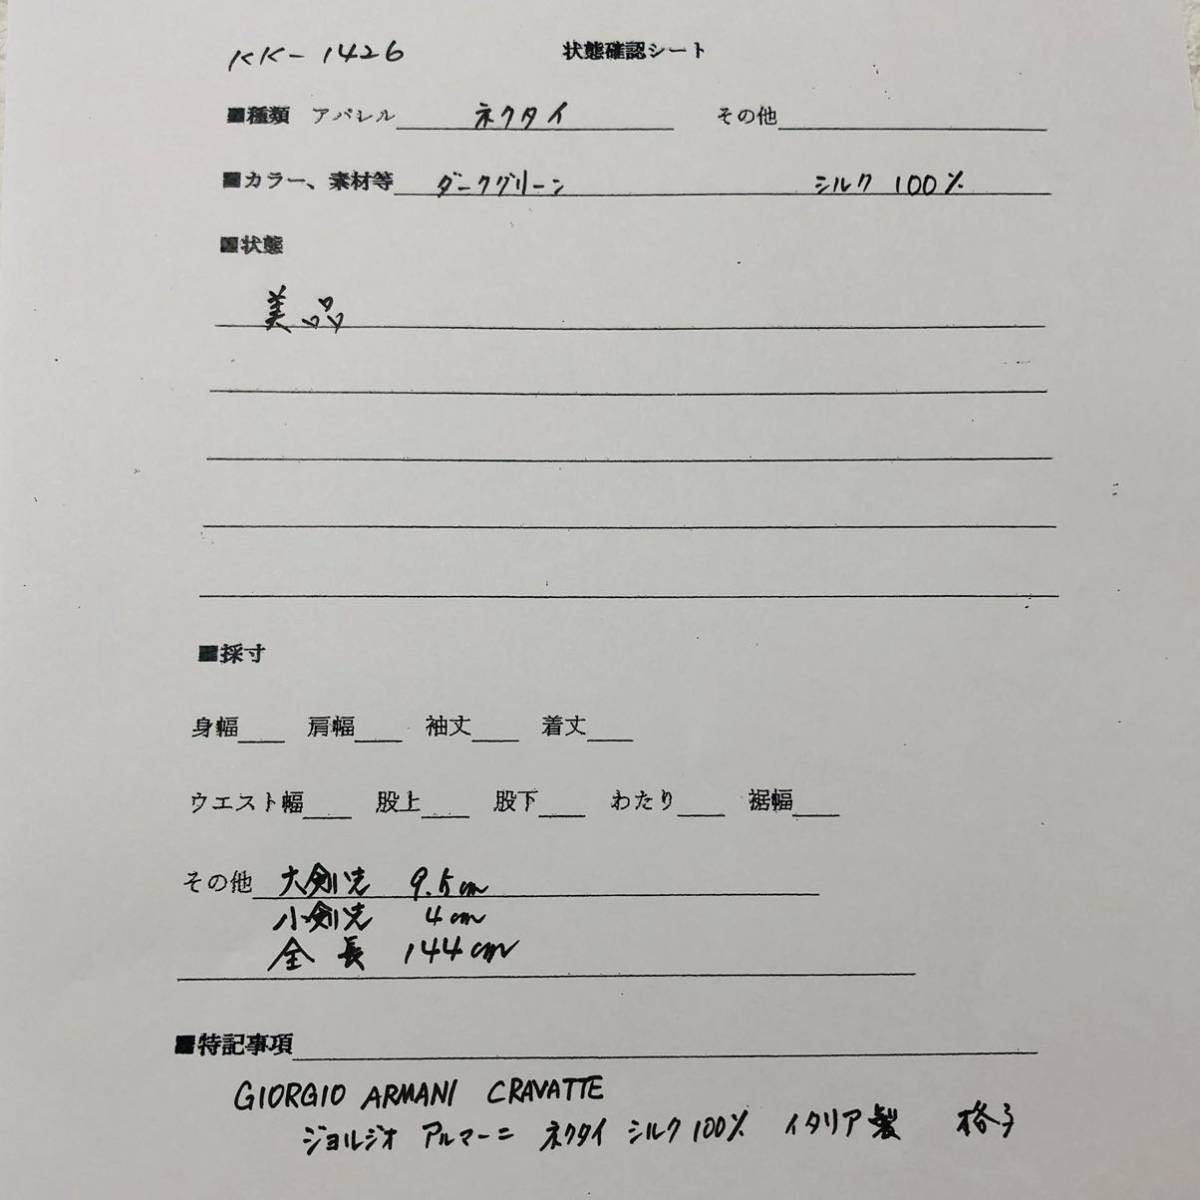 KK-1426 状態確認シート
■種類 アパレル ネクタイ その他
■カラー、素材等 ダークグリーン シルク 100%
■状態
美品
■採寸
身幅 肩幅 袖丈 着丈
ウエスト幅 股上 股下 わたり 裾幅
その他 大剣先 9.5cm
小剣先 4cm
全長 144cm
■特記事項
GIORGIO ARMANI CRAVATTE
ジョルジオ アルマーニ ネクタイ シルク100% イタリア製 格子